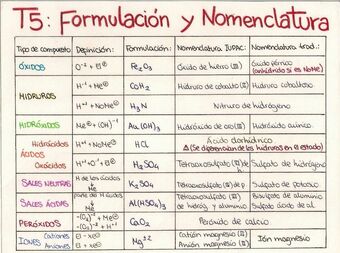 T5: Formulación y Nomenclatura
Tipo de compuesto Definición: Formulación: Nomenclatura IUPAC: Nomenclatura trad.:
ÓXIDOS O⁻² + El Fe₂O₃ Óxido de hierro (III) Óxido férrico
(anhídrido si es NoMe)
HIDRUROS H⁻¹ + Me CoH₂ Hidruro de cobalto (II) Hidruro cobaltoso
H⁺¹ + NoMe H₃N Nitruro de hidrógeno
HIDRÓXIDOS Me + (OH)⁻¹ Au(OH)₃ Hidróxido de oro (III) Hidróxido aúrico
Hidrácidos H⁺¹ + NoMe HCl Ácido clorhídrico
ÁCIDOS (Se diferencian de los hidruros en el estado)
Oxácidos H⁺¹ + O⁻² + El H₂SO₄ Tetraoxosulfato (VI) de h. Sulfato de hidrógeno
SALES NEUTRAS H de los ácidos Me K₂SO₄ Tetraoxosulfato (VI) de p. Sulfato de potasio
SALES ÁCIDAS parte de H ácidos Me Al(HSO₄)₃ Tetraoxosulfato (VI) de hidróg. y aluminio Bisulfato de aluminio
Sulfato ácido de al.
PERÓXIDOS (O₂)⁻² + Me CaO₂ Peróxido de calcio
IONES Cationes El - xe Mg⁺² Catión magnesio (II) Ión magnesio
Aniones El + xe Anión magnesio (II)